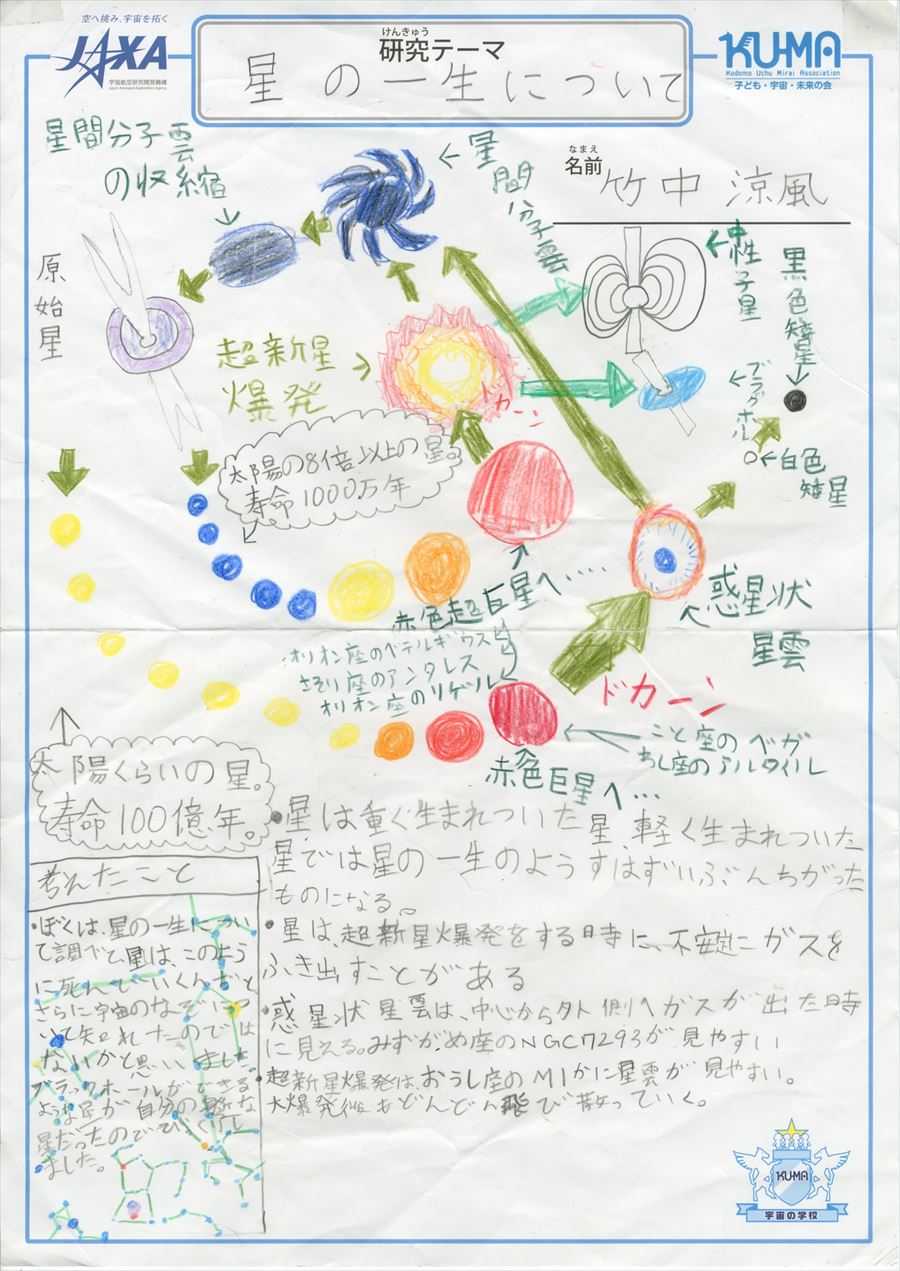 空へ挑み、宇宙を拓く
JAXA
宇宙航空研究開発機構
Japan Aerospace Exploration Agency
けんきゅう
研究テーマ
星の一生について
KU-MA
Kodomo Uchu Mirai Association
子ども・宇宙・未来の会
なまえ
名前
竹中 涼風
星間分子雲
の収縮
←星間分子雲
原始星
超新星
爆発
ドカーン
←中性子星
黒色矮星
←ブラックホール
←白色
矮星
太陽の8倍以上の星。
寿命1000万年
赤色超巨星へ・・・・
オリオン座のベテルギウス
さそり座のアンタレス
オリオン座のリゲル
惑星状
星雲
ドカーン
こと座のベガ
わし座のアルタイル
赤色巨星へ・・・
太陽くらいの星。
寿命100億年。
・星は重く生まれついた星、軽く生まれついた
星では星の一生のようすはずいぶんちがった
ものになる。
・星は、超新星爆発をする時に、不安定にガスを
ふき出すことがある
・惑星状星雲は、中心から外側へガスが出た時
に見える。みずがめ座のNGC7293が見やすい
・超新星爆発は、おうし座のM1かに星雲が見やすい。
大爆発後もどんどん飛び散っていく。
考えたこと
・ぼくは、星の一生につい
て調べて、星は、このよう
に死んでいくんだと
さらに宇宙のなぞにつ
いて知れたのでは
ないかと思いました。
ブラックホールができる
ような星が自分の身近な
星だったのでびっくりし
ました。
KU-MA
宇宙の学校